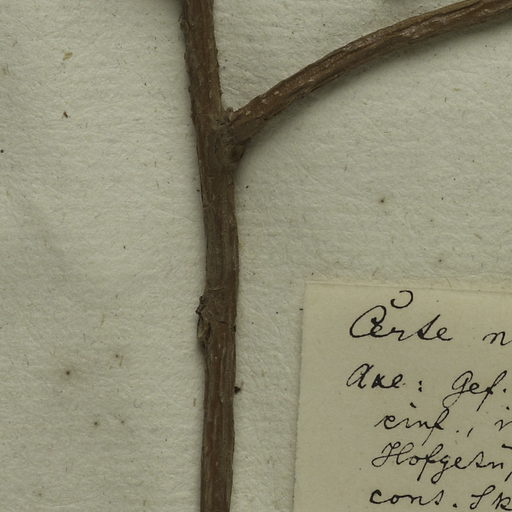 Certe n
Axe: Gef.
einf., i
Hofgetü
cont. Sk